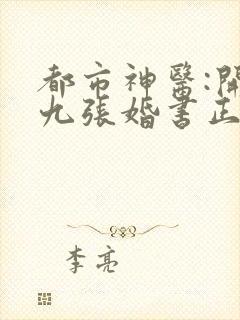 都市神醫:開
九張婚書正
李亮